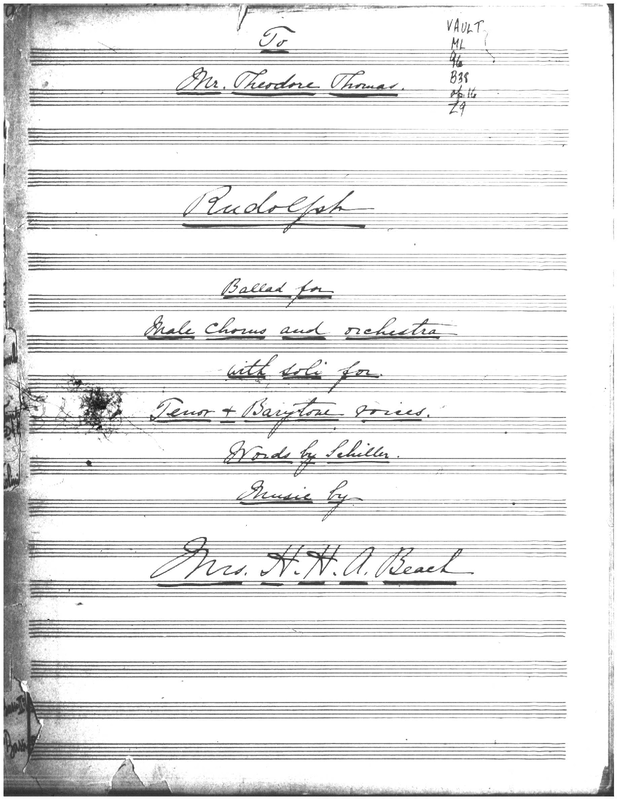 To
Mr. Theodore Thomas.
VAULT
ML
96
B38
op. 16
Z9
Rudolph
Ballad for
Male Chorus and orchestra
with soli for
Tenor + Barytone voices.
Words by Schiller.
Music by
Mrs. H. H. A. Beach